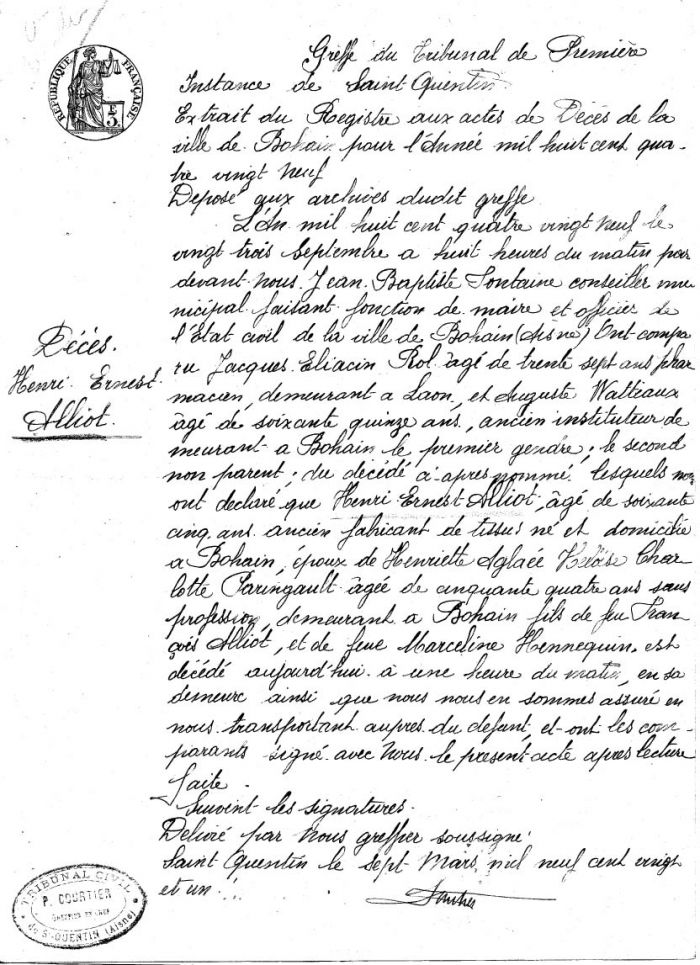 RÉPUBLIQUE FRANÇAISE
Greffe du Tribunal de Première
Instance de Saint Quentin
Extrait du Registre aux actes de Décès de la
ville de Bohain pour l'Année mil huit cent qua-
tre vingt neuf
Déposé aux archives dudit greffe
L'An mil huit cent quatre vingt neuf le
vingt trois Septembre a huit heures du matin par
devant nous Jean Baptiste Fontaine conseiller mu
nicipal faisant fonction de maire et officier de
l'Etat civil de la ville de Bohain (Aisne) Ont compa
ru Jacques Eliacin Rol âgé de trente sept ans phar
macien, demeurant a Laon, et Auguste Watteaux
âgé de soixante quinze ans, ancien instituteur de
meurant a Bohain le premier gendre; le second
non parent; du décédé ci-apres nommé lesquels nous
ont declaré que Henri Ernest Alliot, âgé de soixante
cinq ans ancien fabricant de tissus né et domicilié
a Bohain, époux de Henriette Aglaée Héloïse Char
lotte Paringault agée de cinquante quatre ans sans
profession, demeurant a Bohain fils de feu Fran
çois Alliot, et de feue Marceline Hennequin est
décédé aujourd'hui à une heure du matin, en sa
demeure ainsi que nous nous en sommes assuré en
nous transportant aupres du defunt, et ont les com-
parants signé avec nous le présent acte apres lecture
faite.
Suivent les signatures.
Delivré par nous greffier soussigné.
Saint Quentin le sept Mars mil neuf cent vingt
et un.
Décés.
Henri Ernest
Alliot.
TRIBUNAL CIVIL
P. COURTIER
GREFFIER EN CHEF
de St QUENTIN (Aisne)